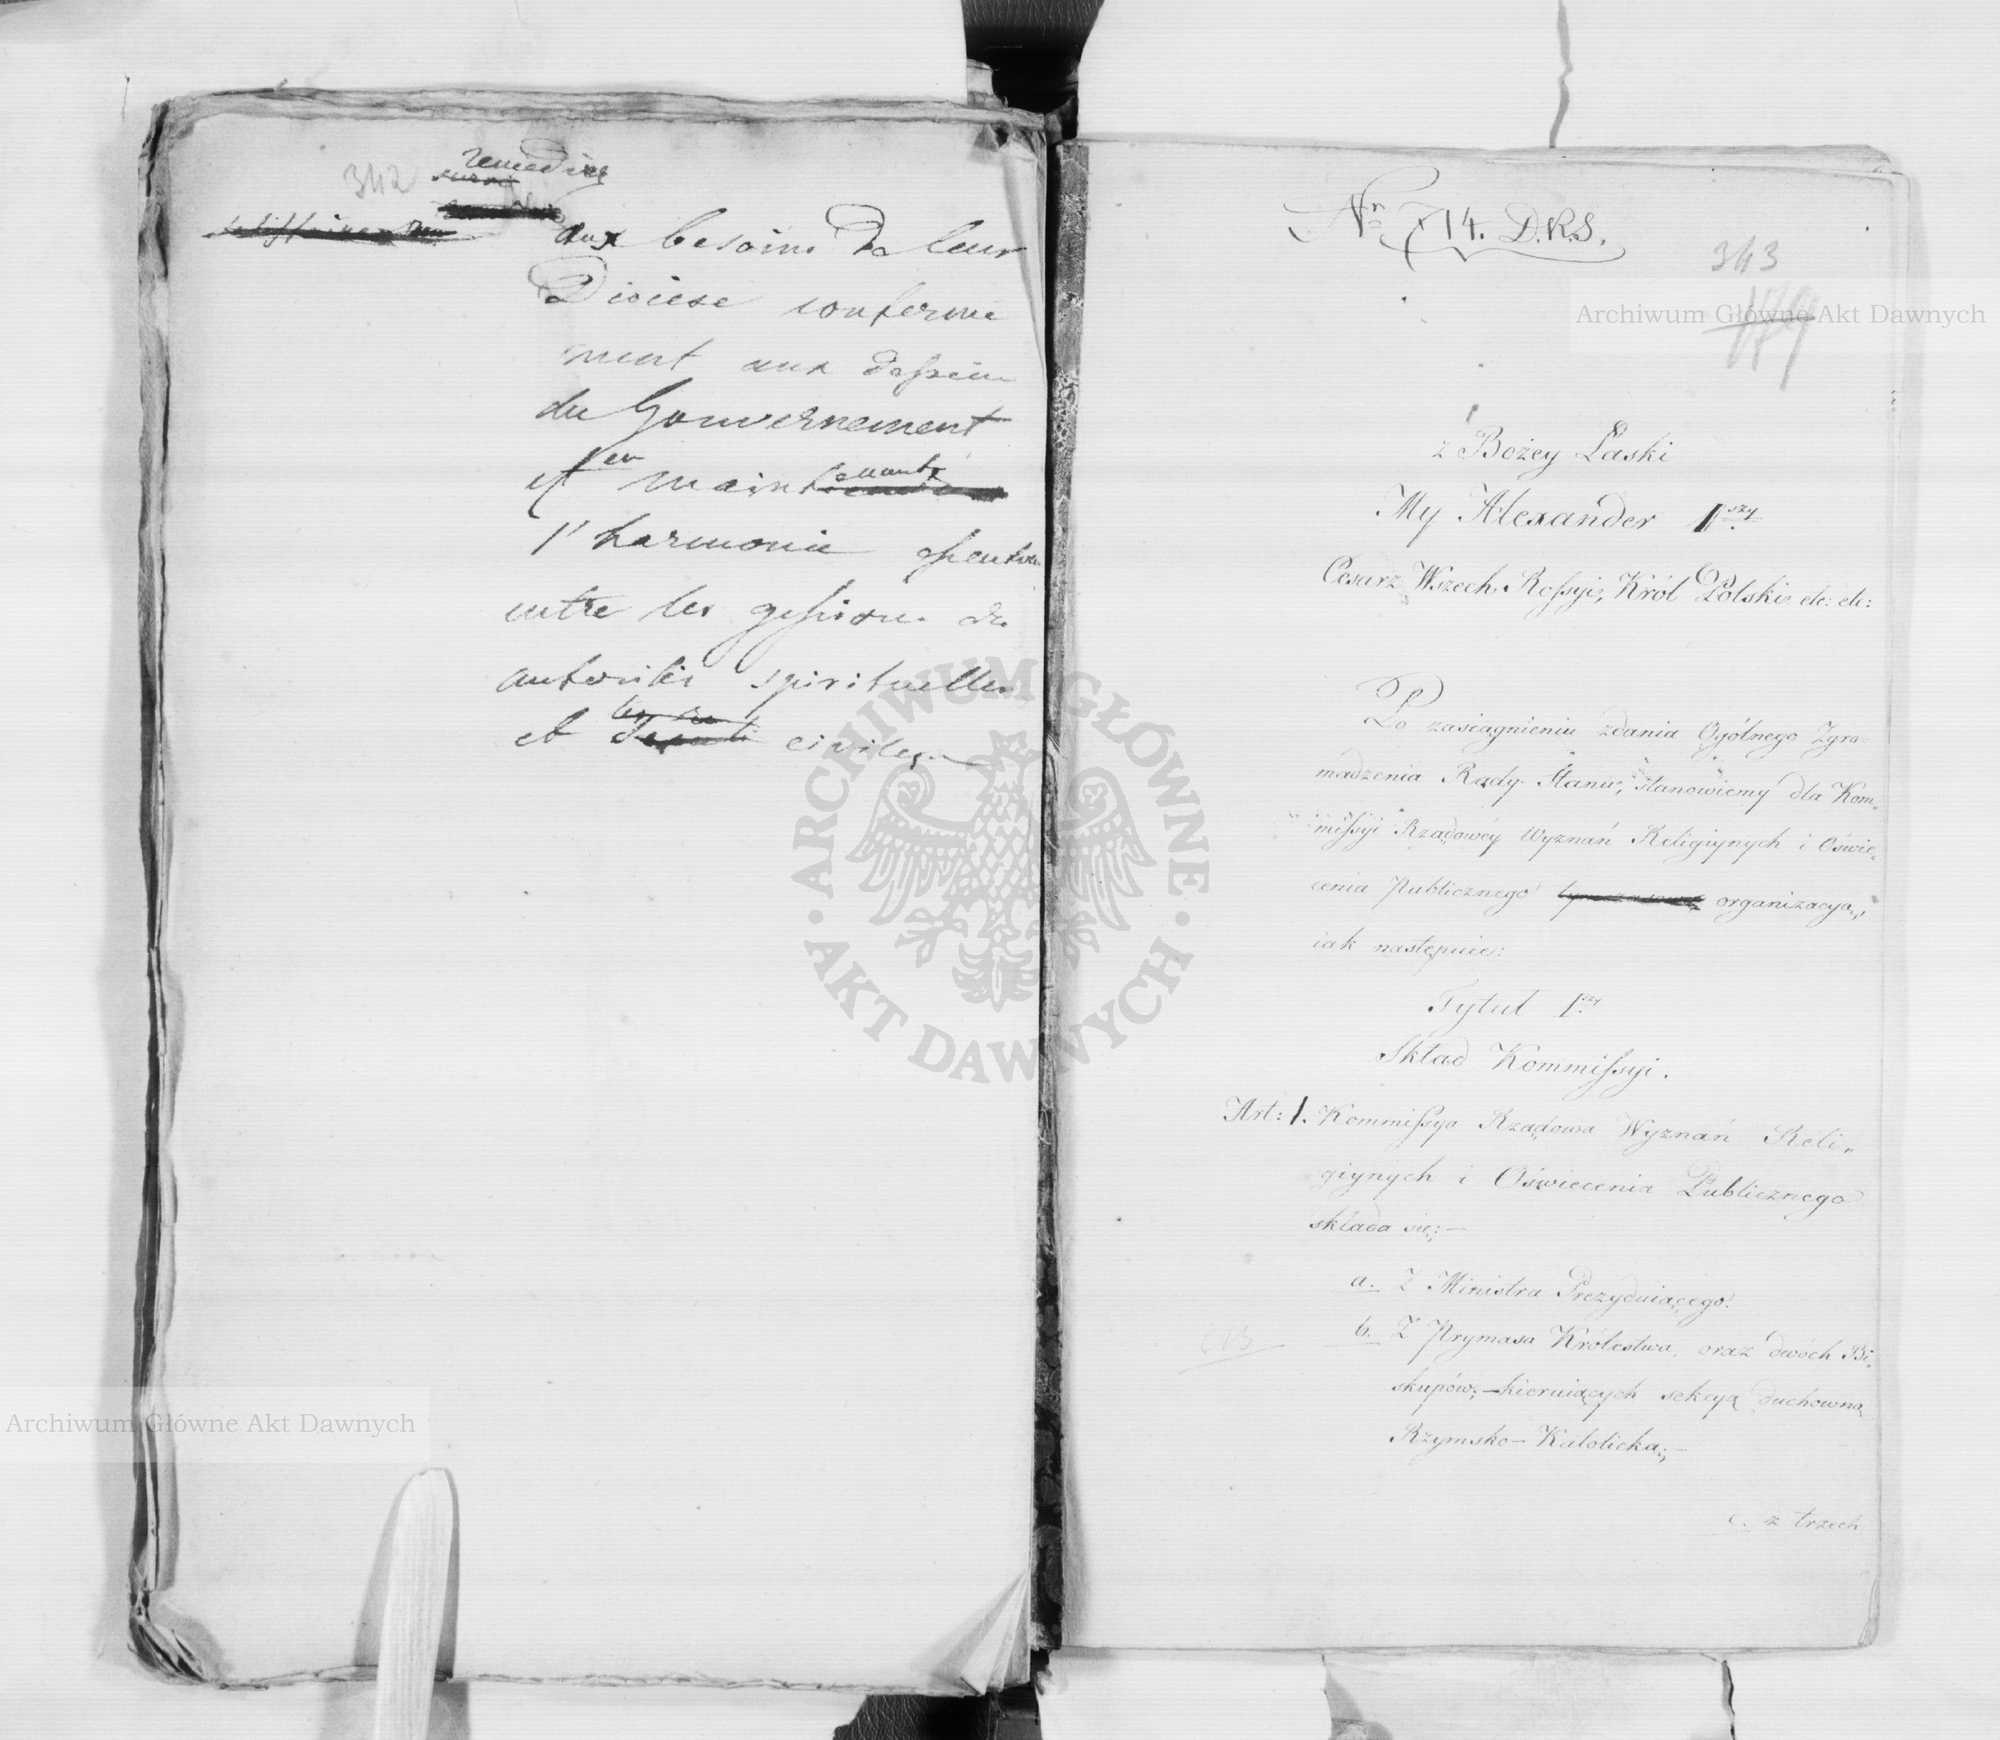 342
remedier
aux besoins de leur
Diocese conforme
ment aux dessein
du Gouvernement
et en maintenant
l'harmonie
entre les de
autorités spirituelles
et civiles
Nr 714. D.R.S.
343
179
z Bożey Łaski
My Alexander Iszy
Cesarz Wszech Rossyi, Król Polski etc: etc:
Po zasiągnieniu zdania Ogólnego Zgro-
madzenia Rady Stanu, stanowiemy dla Kom-
missyi Rządowéy Wyznań Religiynych i Oświe-
cenia Publicznego tymczasową organizacyą,
iak następuie:
Tytuł Iszy
Skład Kommissyi.
Art: 1. Kommissya Rządowa Wyznań Reli-
giynych i Oświecenia Publicznego
składa się: —
a. Z Ministra Prezyduiącego.
b. Z Prymasa Królestwa, oraz dwóch Bi-
skupów, kieruiących sekcyą duchowną
Rzymsko-Katolicką; —
c. z trzech
Archiwum Główne Akt Dawnych
Archiwum Główne Akt Dawnych
ARCHIWUM GŁÓWNE · AKT DAWNYCH ·